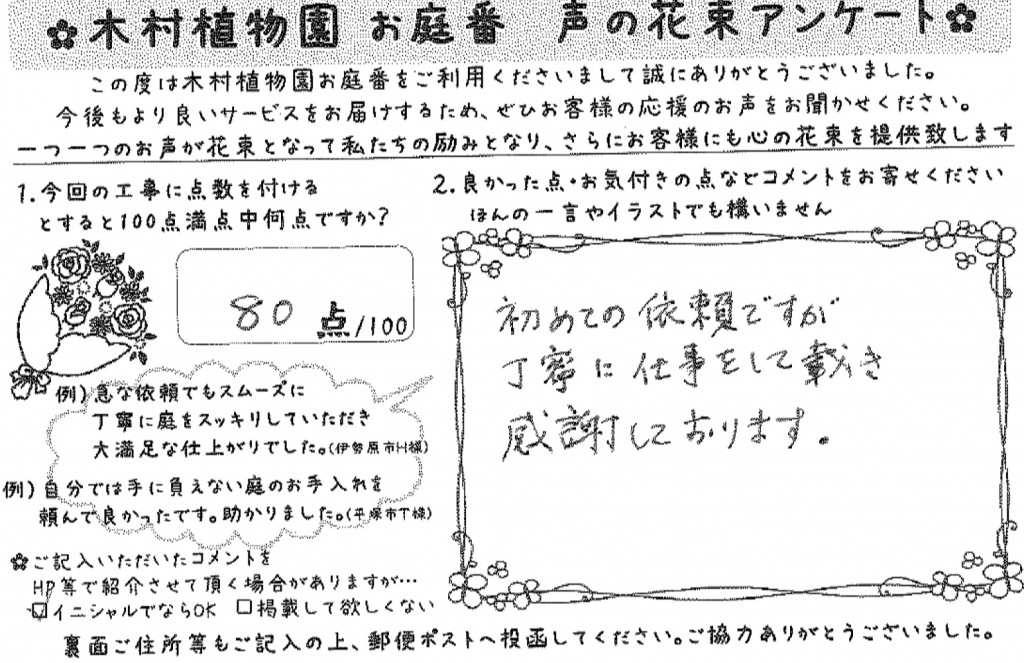 ✿木村植物園 お庭番 声の花束アンケート✿
この度は木村植物園お庭番をご利用くださいまして誠にありがとうございました。
今後もより良いサービスをお届けするため、ぜひお客様の応援のお声をお聞かせください。
一つ一つのお声が花束となって私たちの励みとなり、さらにお客様にも心の花束を提供致します
1.今回の工事に点数を付ける
とすると100点満点中何点ですか?
80 点/100
例)急な依頼でもスムーズに
丁寧に庭をスッキリしていただき
大満足な仕上がりでした。(伊勢原市H様)
例)自分では手に負えない庭のお手入れを
頼んで良かったです。助かりました。(平塚市T様)
✿ご記入いただいたコメントを
HP等で紹介させて頂く場合がありますが…
☑イニシャルでならOK □掲載して欲しくない
2.良かった点・お気付きの点などコメントをお寄せください
ほんの一言やイラストでも構いません
初めての依頼ですが
丁寧に仕事をして戴き
感謝しております。
裏面ご住所等もご記入の上、郵便ポストへ投函してください。ご協力ありがとうございました。